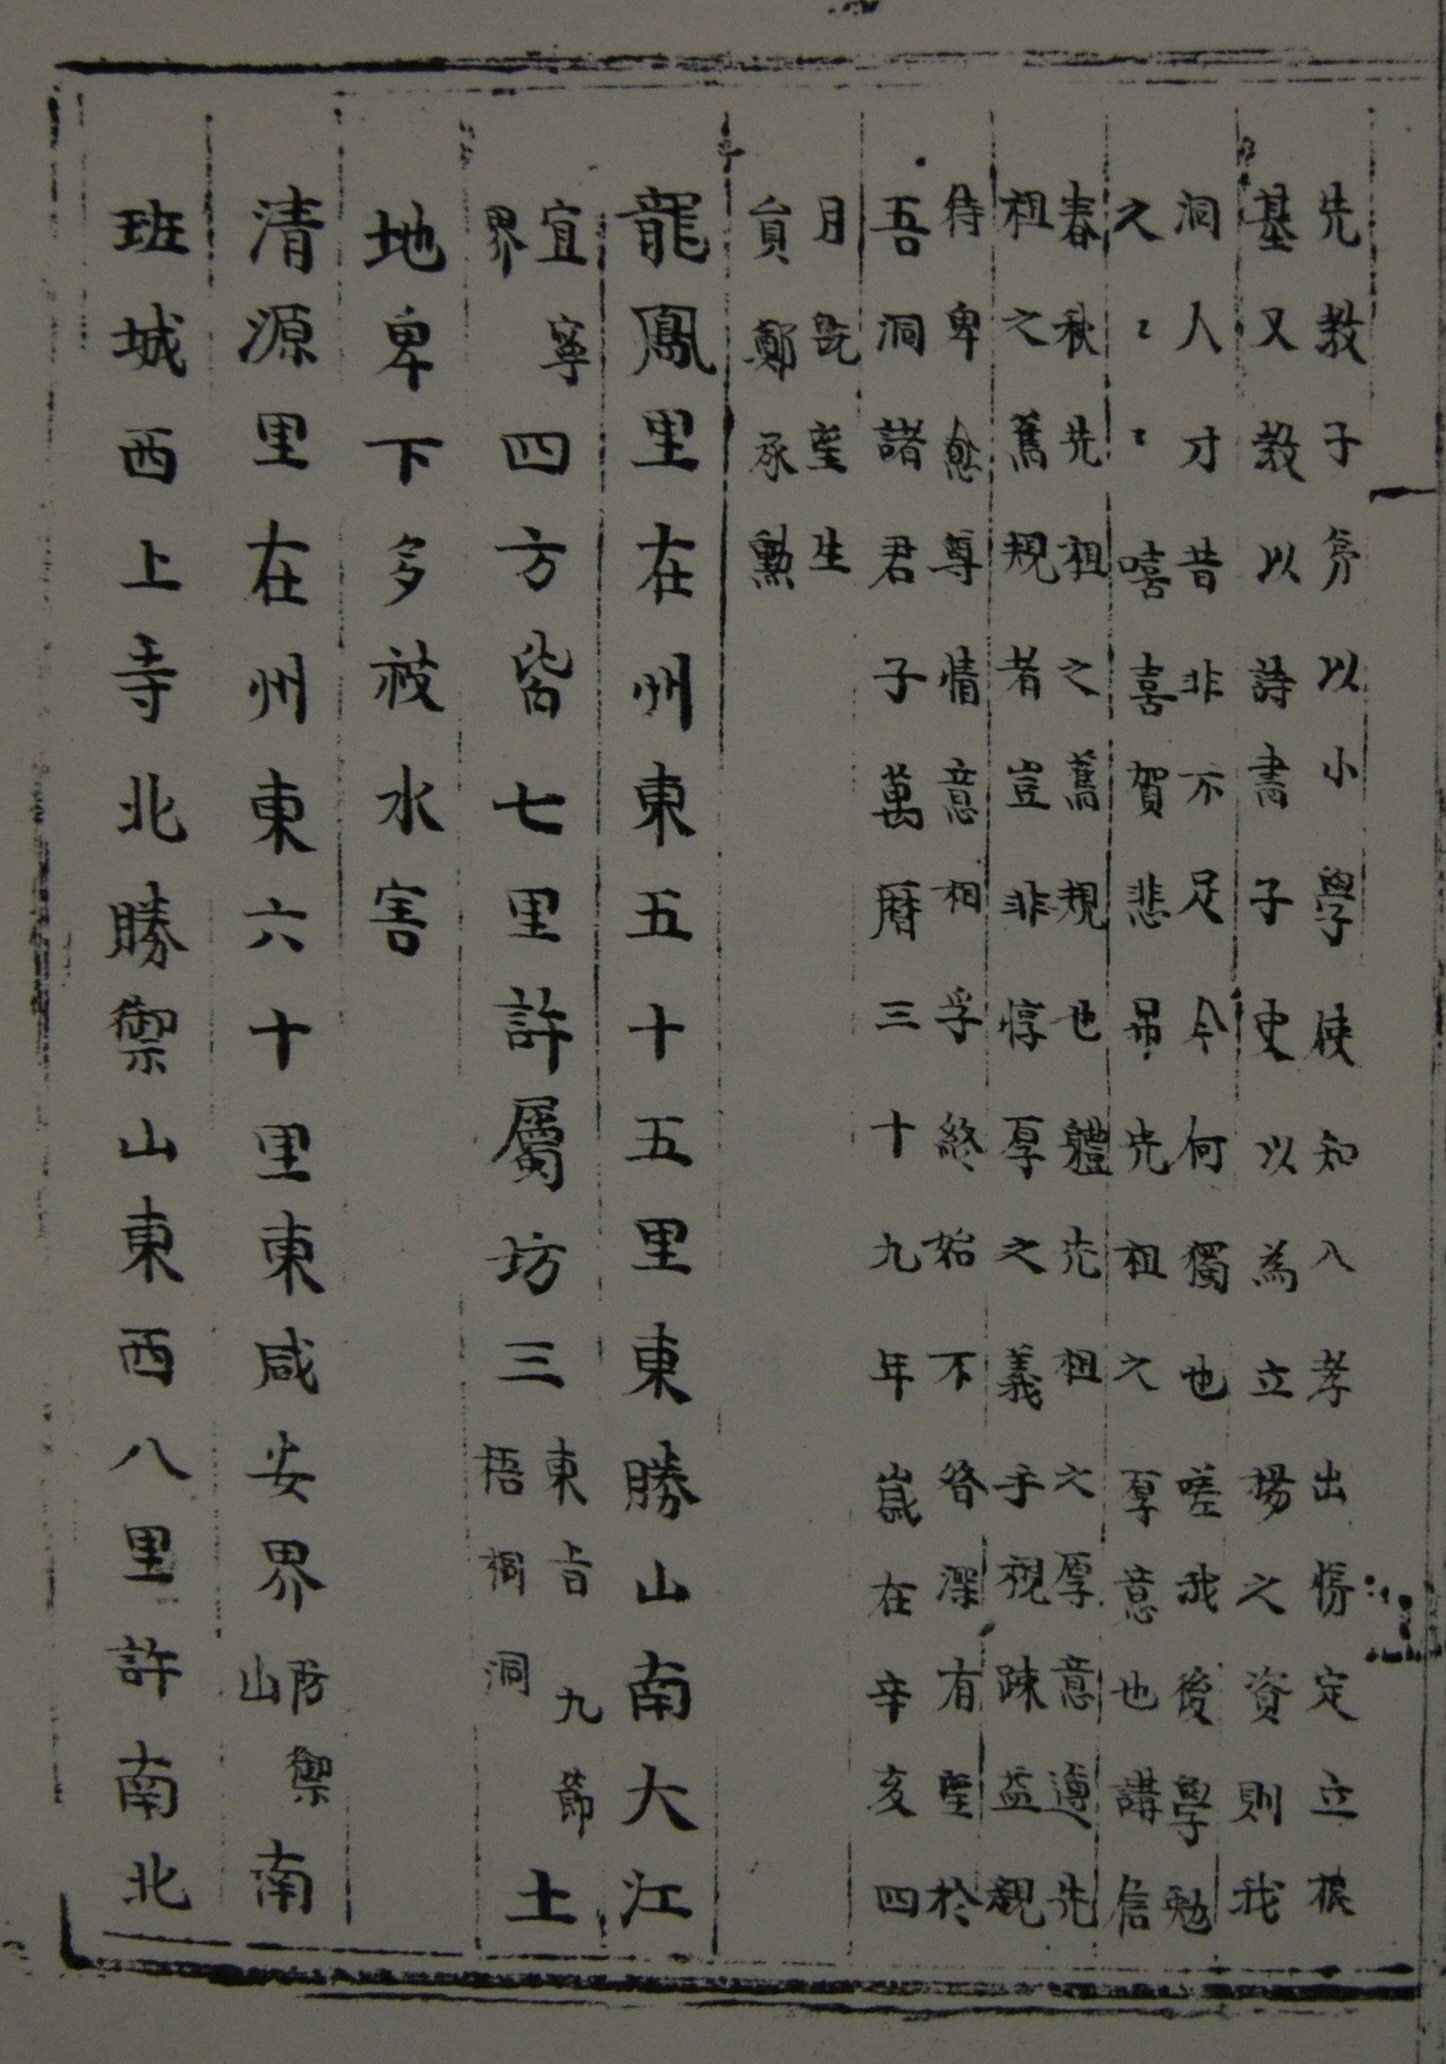 先教子弟以小學使知入孝出悌定立根
基又教以詩書子史以為立揚之資則我
洞人才昔非不足今何獨也嗟我後學勉
之〻〻嘻喜賀悲吊先祖之厚意也講信
春秋先祖之舊規也體先祖之厚意遵先
祖之舊規者豈非惇厚之義乎視踈益親
待卑愈尊情意相孚終始不替深有望於
吾洞諸君子萬曆三十九年歲在辛亥四
月旣望生
員鄭承勳
龍鳳里在州東五十五里東勝山南大江
宜寧
界
四方皆七里許屬坊三
東旨九節
梧桐洞
土
地卑下多被水害
清源里在州東六十里東咸安界
防禦
山
南
班城西上寺北勝禦山東西八里許南北